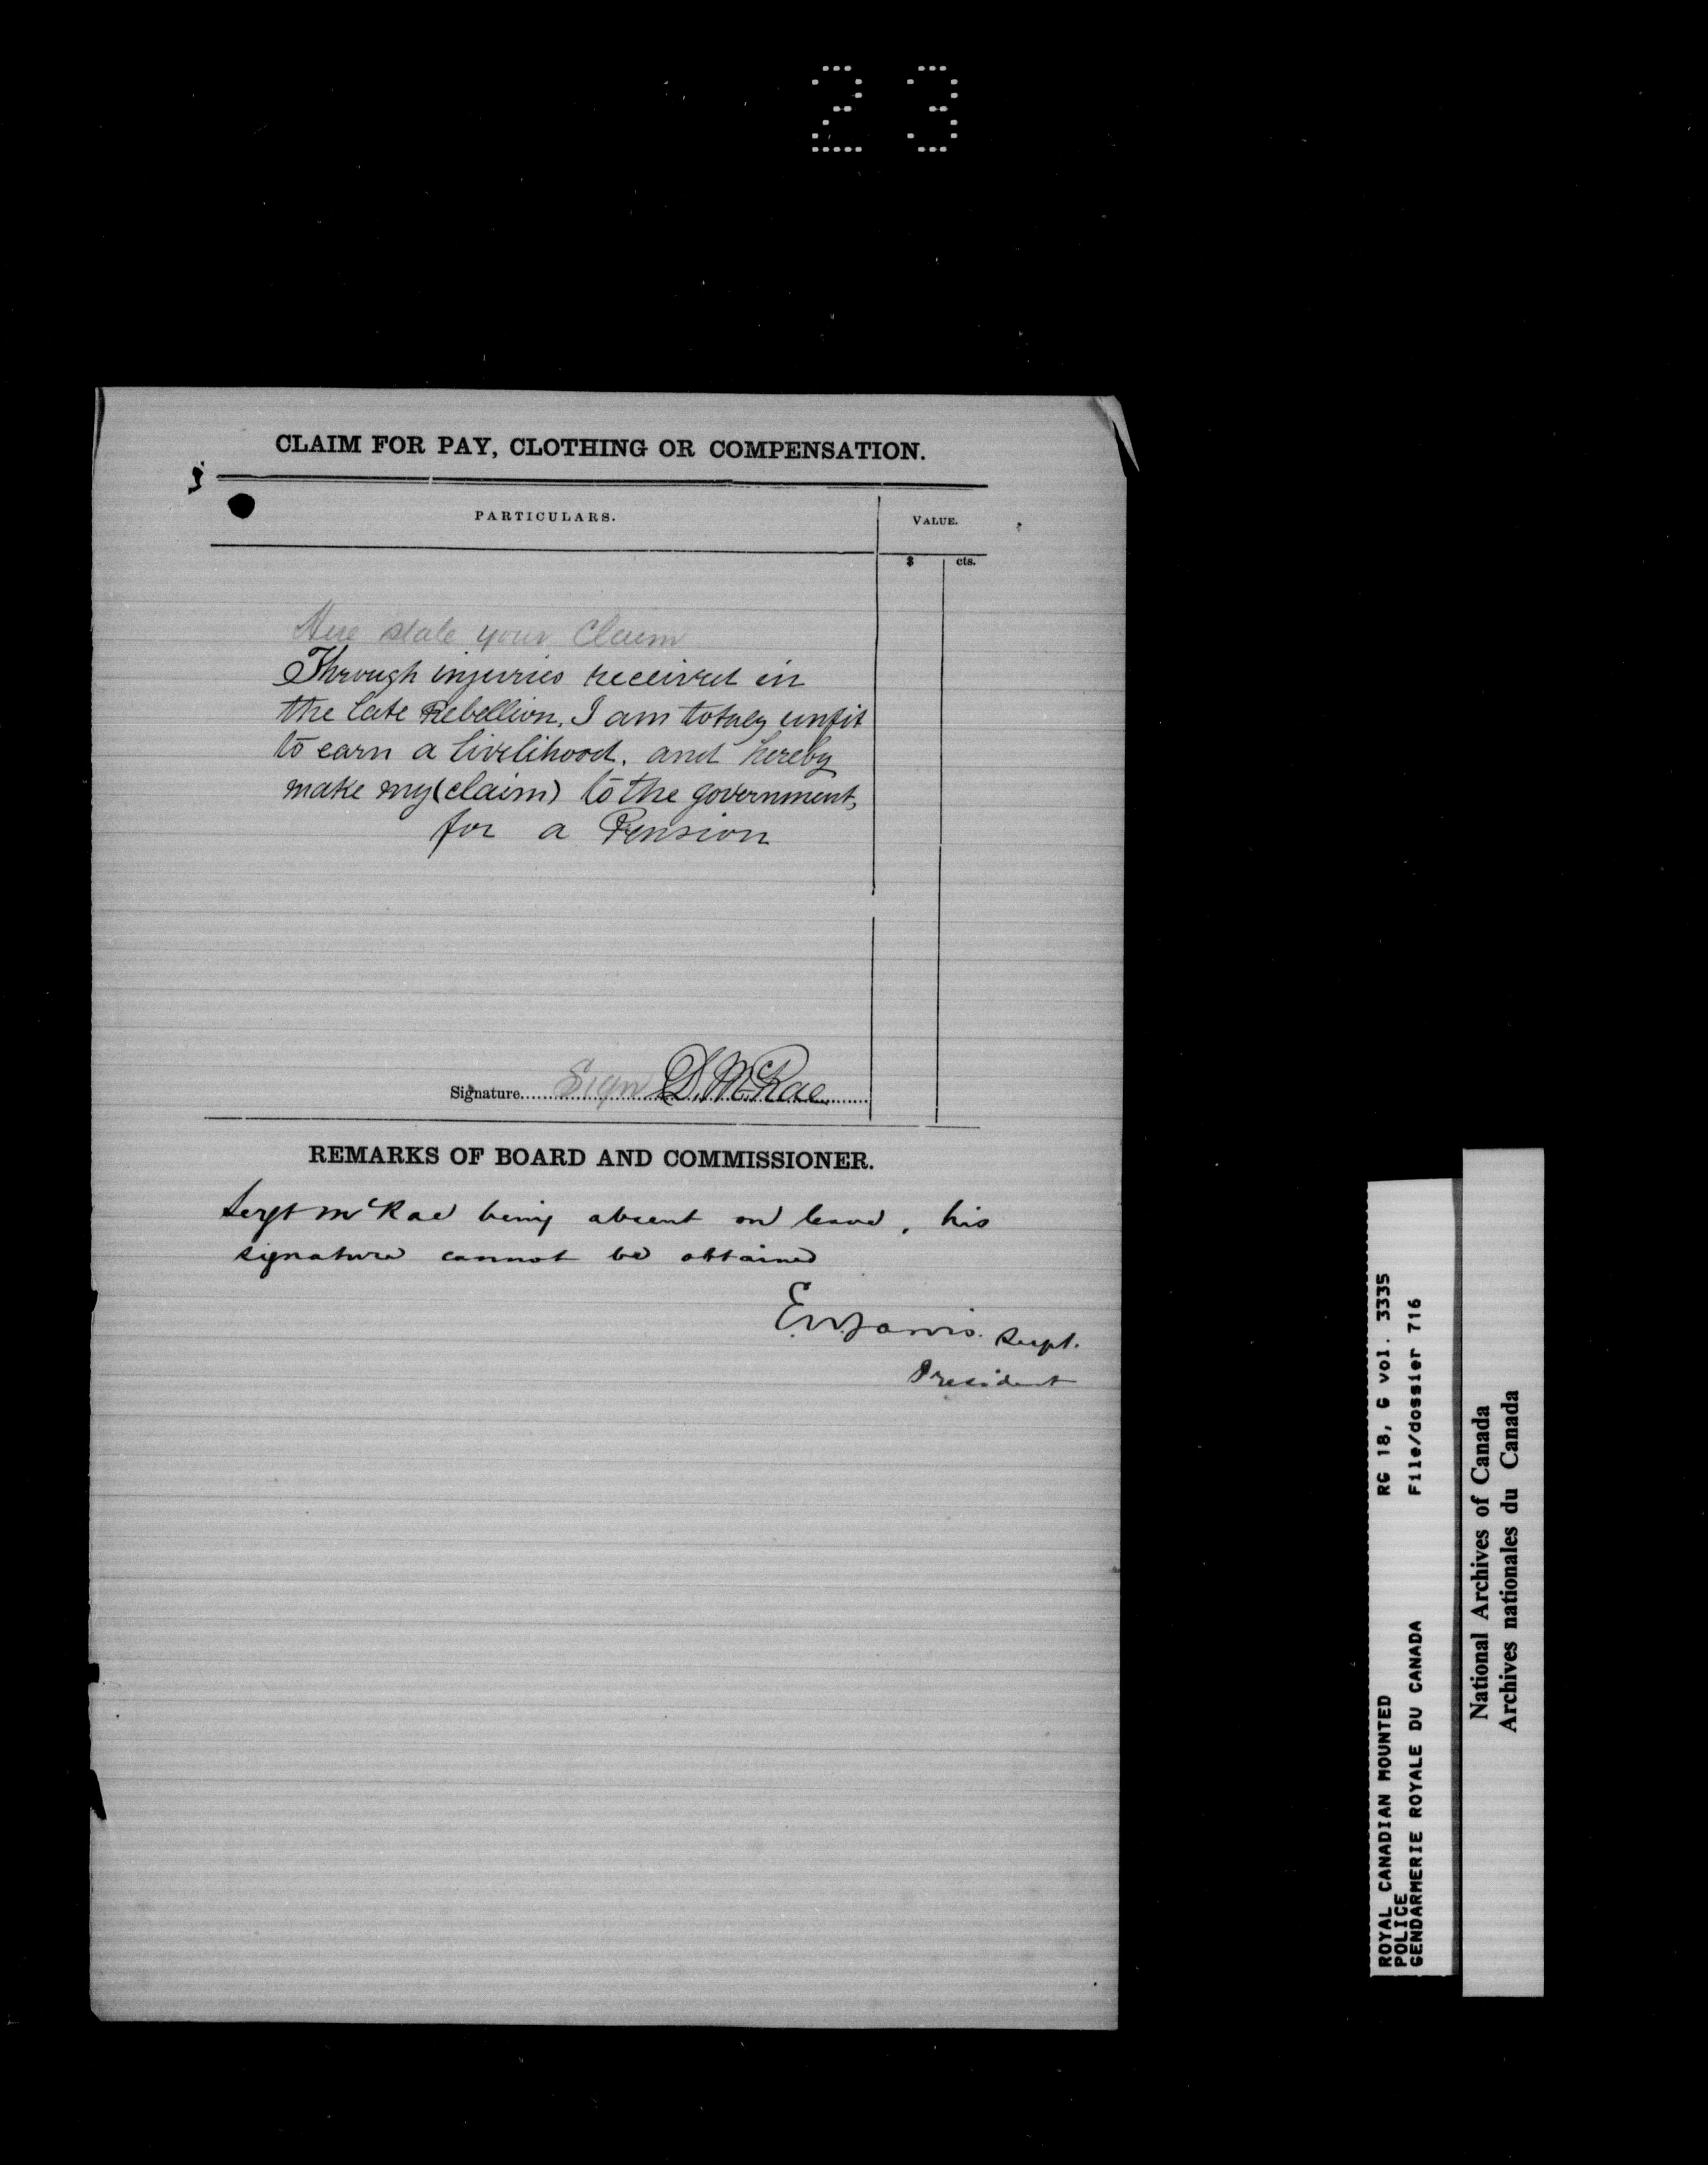 23
CLAIM FOR PAY, CLOTHING OR COMPENSATION.
PARTICULARS.
VALUE.
$ cts.
Here state your Claim
Through injuries received in
the late Rebellion, I am totaly unfit
to earn a livelihood, and hereby
make my (claim) to the government,
for a Pension
Signature Sign D. McRae
REMARKS OF BOARD AND COMMISSIONER.
Sergt McRae being absent on leave, his
signature cannot be obtained
E.W. Jarvis. Supt.
President
ROYAL CANADIAN MOUNTED RG 18, G vol. 3335
POLICE
GENDARMERIE ROYALE DU CANADA File/dossier 716
National Archives of Canada
Archives nationales du Canada